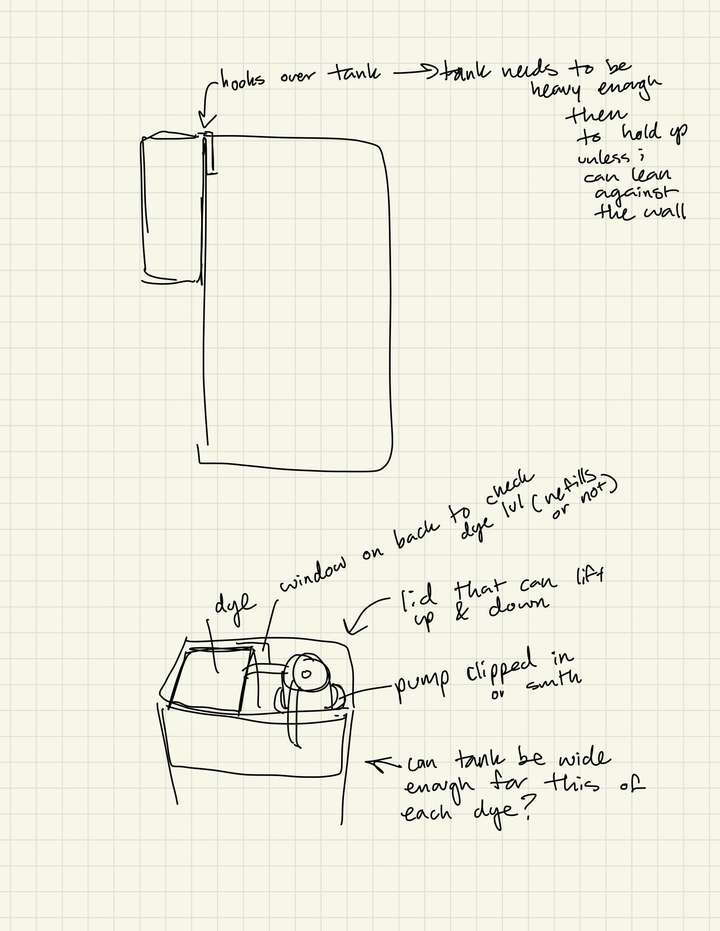 hooks over tank → tank needs to be
heavy enough
then
to hold up
unless i
can lean
against
the wall
window on back to check
dye lvl (refills
or not)
dye
lid that can lift
up & down
pump clipped in
or smth
can tank be wide
enough for this of
each dye?